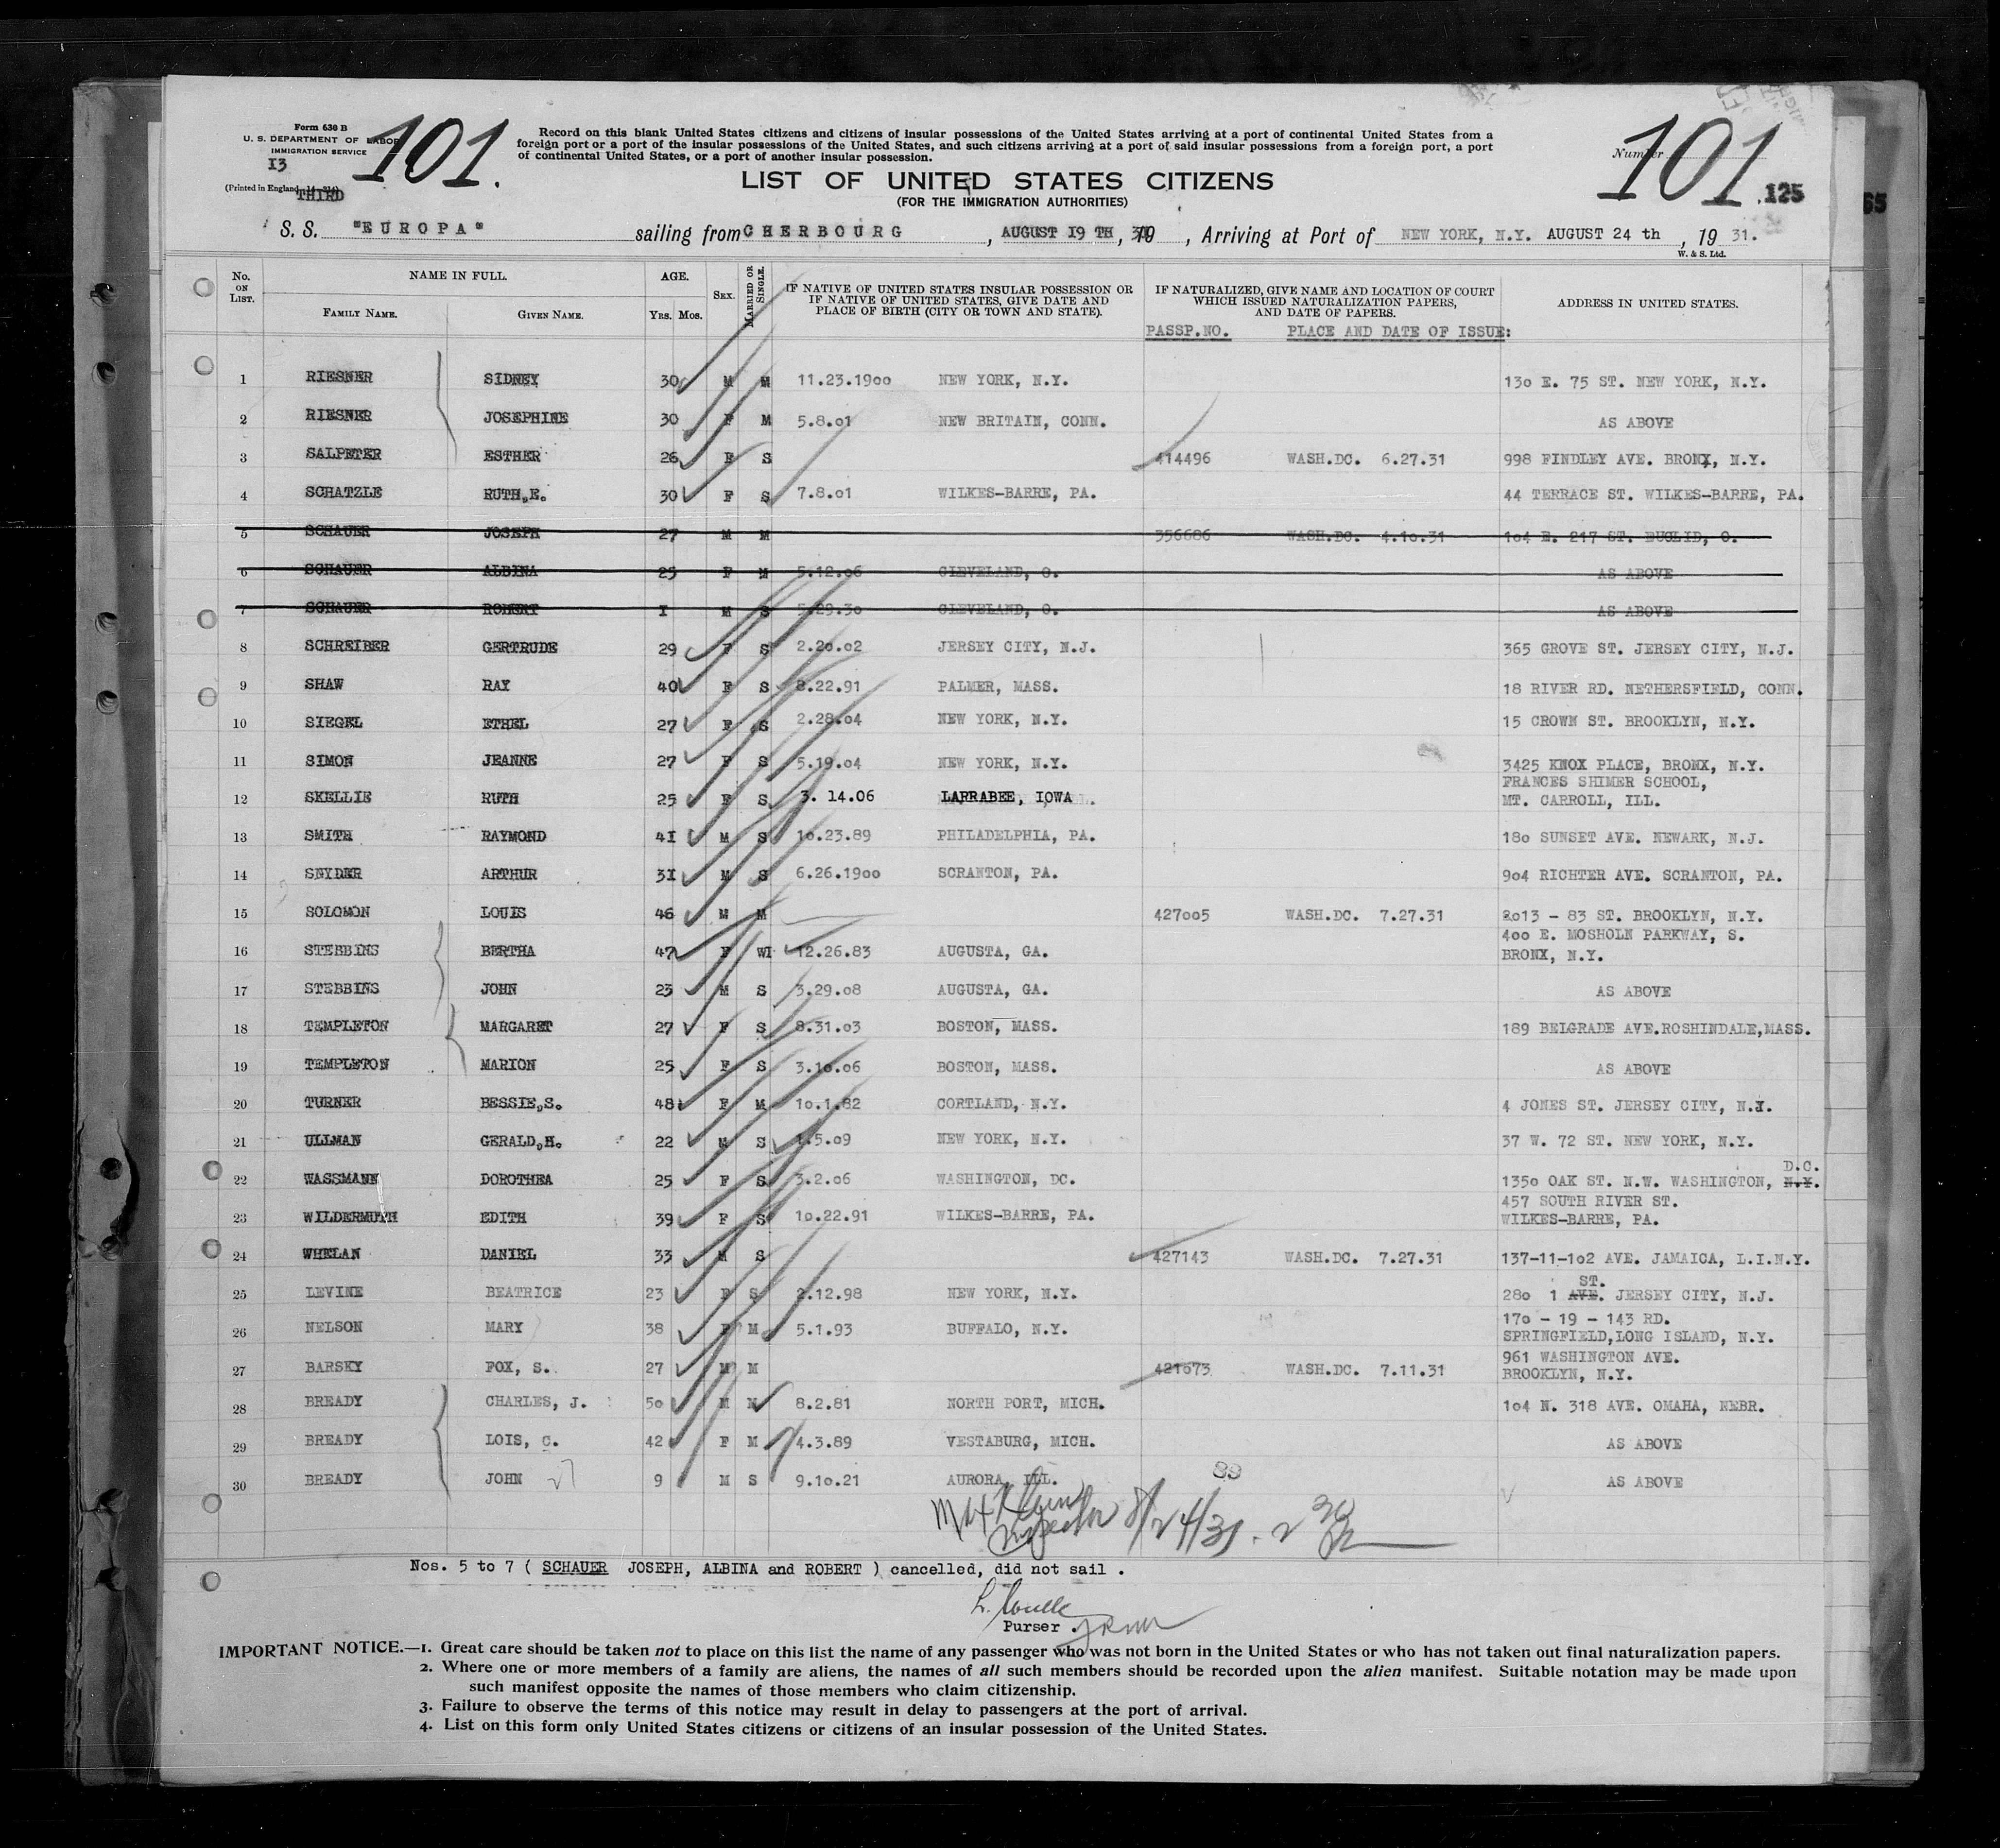 Form 630 B
U. S. DEPARTMENT OF LABOR
IMMIGRATION SERVICE
13
(Printed in England
THIRD
101.
Record on this blank United States citizens and citizens of insular possessions of the United States arriving at a port of continental United States from a
foreign port or a port of the insular possessions of the United States, and such citizens arriving at a port of said insular possessions from a foreign port, a port
of continental United States, or a port of another insular possession.
LIST OF UNITED STATES CITIZENS
(FOR THE IMMIGRATION AUTHORITIES)
Number
101
125
65
S. S. "EUROPA" sailing from CHERBOURG, AUGUST 19 TH, Arriving at Port of NEW YORK, N.Y. AUGUST 24 th, 19 31.
W. & S. Ltd.
No. ON LIST. NAME IN FULL. FAMILY NAME. GIVEN NAME. AGE. YRS. MOS. SEX. MARRIED OR SINGLE. IF NATIVE OF UNITED STATES INSULAR POSSESSION OR IF NATIVE OF UNITED STATES, GIVE DATE AND PLACE OF BIRTH (CITY OR TOWN AND STATE). IF NATURALIZED, GIVE NAME AND LOCATION OF COURT WHICH ISSUED NATURALIZATION PAPERS, AND DATE OF PAPERS. ADDRESS IN UNITED STATES.
PASSP.NO. PLACE AND DATE OF ISSUE:
1 RIESNER SIDNEY 30 M M 11.23.1900 NEW YORK, N.Y. 130 E. 75 ST. NEW YORK, N.Y.
2 RIESNER JOSEPHINE 30 F M 5.8.01 NEW BRITAIN, CONN. AS ABOVE
3 SALPETER ESTHER 26 F S 414496 WASH.DC. 6.27.31 998 FINDLEY AVE. BRONX, N.Y.
4 SCHATZLE RUTH,E. 30 F S 7.8.01 WILKES-BARRE, PA. 44 TERRACE ST. WILKES-BARRE, PA.
5 SCHAUER JOSEPH 27 M M 356686 WASH.DC. 4.10.31 104 E. 217 ST. EUCLID, O.
6 SCHAUER ALBINA 25 F M 5.12.06 CLEVELAND, O. AS ABOVE
7 SCHAUER ROBERT 1 M S 5.29.30 CLEVELAND, O. AS ABOVE
8 SCHREIBER GERTRUDE 29 F S 2.20.02 JERSEY CITY, N.J. 365 GROVE ST. JERSEY CITY, N.J.
9 SHAW RAY 40 F S 8.22.91 PALMER, MASS. 18 RIVER RD. NETHERSFIELD, CONN.
10 SIEGEL ETHEL 27 F S 2.28.04 NEW YORK, N.Y. 15 CROWN ST. BROOKLYN, N.Y.
11 SIMON JEANNE 27 F S 5.19.04 NEW YORK, N.Y. 3425 KNOX PLACE, BRONX, N.Y.
12 SKELLIE RUTH 25 F S 3. 14.06 LARRABEE, IOWA FRANCES SHIMER SCHOOL,
MT. CARROLL, ILL.
13 SMITH RAYMOND 41 M S 10.23.89 PHILADELPHIA, PA. 180 SUNSET AVE. NEWARK, N.J.
14 SNYDER ARTHUR 31 M S 6.26.1900 SCRANTON, PA. 904 RICHTER AVE. SCRANTON, PA.
15 SOLOMON LOUIS 46 M M 427005 WASH.DC. 7.27.31 2013 - 83 ST. BROOKLYN, N.Y.
16 STEBBINS BERTHA 47 F WI 12.26.83 AUGUSTA, GA. 400 E. MOSHOLN PARKWAY, S.
BRONX, N.Y.
17 STEBBINS JOHN 23 M S 3.29.08 AUGUSTA, GA. AS ABOVE
18 TEMPLETON MARGARET 27 F S 8.31.03 BOSTON, MASS. 189 BELGRADE AVE.ROSHINDALE,MASS.
19 TEMPLETON MARION 25 F S 3.10.06 BOSTON, MASS. AS ABOVE
20 TURNER BESSIE,S. 48 F M 10.1.82 CORTLAND, N.Y. 4 JONES ST. JERSEY CITY, N.J.
21 ULLMAN GERALD,H. 22 M S 1.5.09 NEW YORK, N.Y. 37 W. 72 ST. NEW YORK, N.Y.
22 WASSMANN DOROTHEA 25 F S 3.2.06 WASHINGTON, DC. 1350 OAK ST. N.W. WASHINGTON, N.Y. D.C.
23 WILDERMUTH EDITH 39 F S 10.22.91 WILKES-BARRE, PA. 457 SOUTH RIVER ST.
WILKES-BARRE, PA.
24 WHELAN DANIEL 33 M S 427143 WASH.DC. 7.27.31 137-11-102 AVE. JAMAICA, L.I.N.Y.
25 LEVINE BEATRICE 23 F S 2.12.98 NEW YORK, N.Y. 280 1 AVE. ST. JERSEY CITY, N.J.
26 NELSON MARY 38 F M 5.1.93 BUFFALO, N.Y. 170 - 19 - 143 RD.
SPRINGFIELD,LONG ISLAND, N.Y.
27 BARSKY FOX, S. 27 M M 421673 WASH.DC. 7.11.31 961 WASHINGTON AVE.
BROOKLYN, N.Y.
28 BREADY CHARLES, J. 50 M M 8.2.81 NORTH PORT, MICH. 104 N. 318 AVE. OMAHA, NEBR.
29 BREADY LOIS, C. 42 F M 4.3.89 VESTABURG, MICH. AS ABOVE
30 BREADY JOHN 9 M S 9.10.21 AURORA, ILL. AS ABOVE
27
89
Inspector 8/24/31.
Nos. 5 to 7 ( SCHAUER JOSEPH, ALBINA and ROBERT ) cancelled, did not sail .
Purser .
IMPORTANT NOTICE.—1. Great care should be taken not to place on this list the name of any passenger who was not born in the United States or who has not taken out final naturalization papers.
2. Where one or more members of a family are aliens, the names of all such members should be recorded upon the alien manifest. Suitable notation may be made upon
such manifest opposite the names of those members who claim citizenship.
3. Failure to observe the terms of this notice may result in delay to passengers at the port of arrival.
4. List on this form only United States citizens or citizens of an insular possession of the United States.